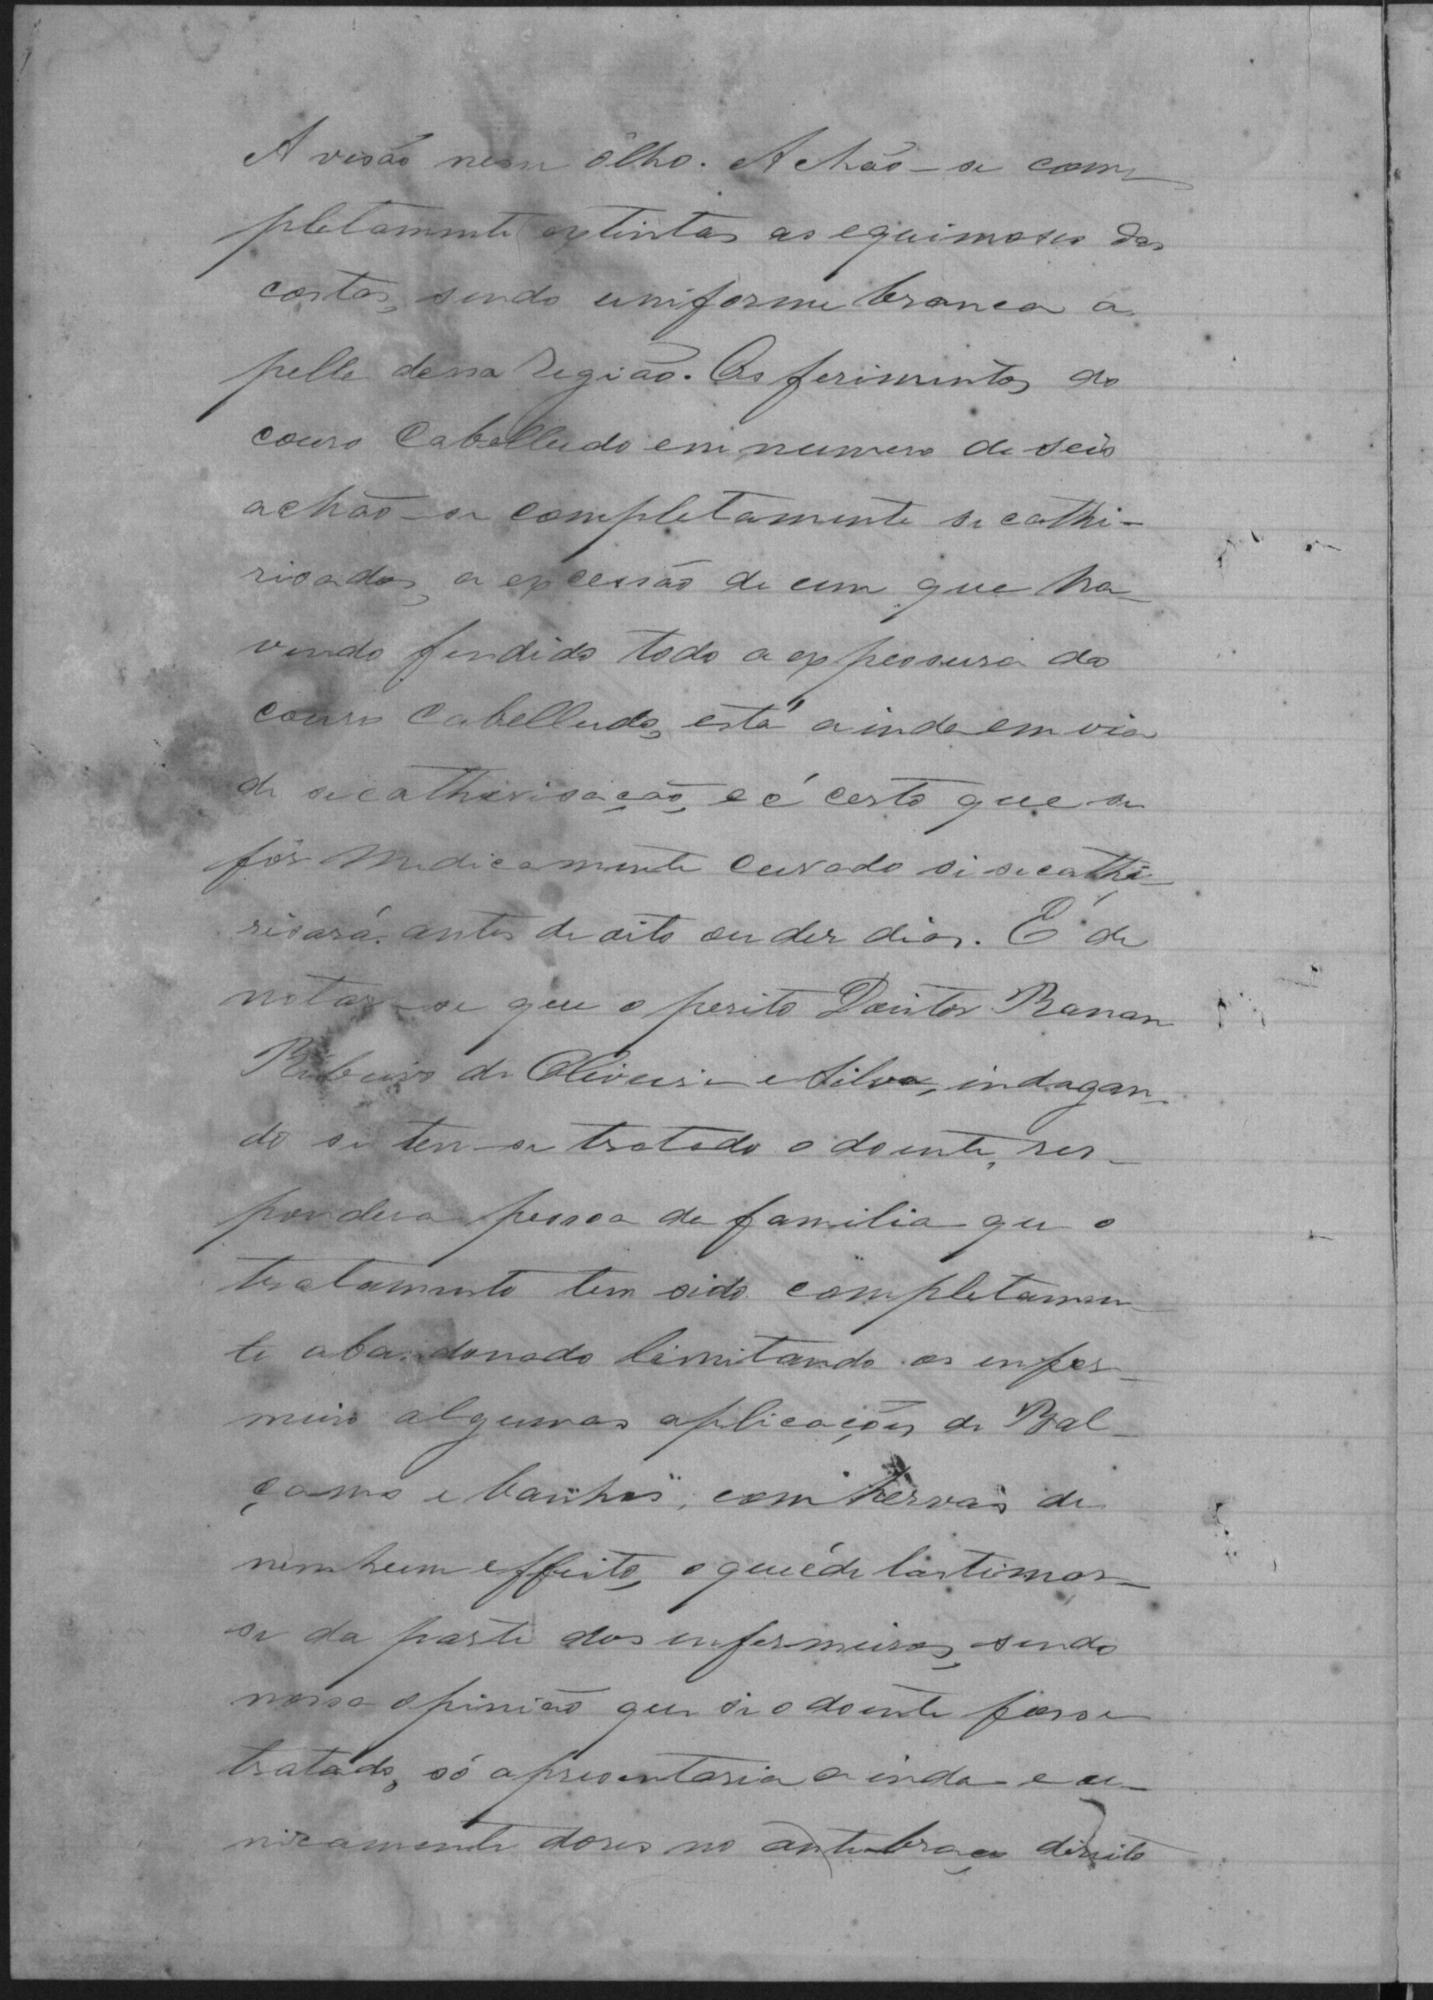 A visão nesse ôlho. Achão-se com-
pletamente extintas as equimoses das
costas, sendo uniforme branca a
pelle dessa região. Os ferimentos do
couro Cabelludo em numero de seis
achão-se completamente sicathi-
risados, a excessão de um que ha-
vendo fendido todo a expessura do
couro Cabelludo, está ainda em via
de sicathirisação, e é certo que se
fôr medicamente curado si sicathi-
risará antes de oito ou dez dias. É de
notar-se que o perito Doutor
Ribeiro de Oliveira e Silva, indagan-
do se tem-se tratado o doente, res-
pondera pessoa da familia que o
tratamento tem sido completamen-
te abandonado limitando os enfer-
meiro algumas aplicações de Bal-
çamo e banhos, com hervas de
nemhum effeito, o que é de lastimar-
se da parte dos enfermeiros, sendo
nossa opinião que si o doente fosse
tratado, só apresentaria ainda e u-
nicamente dores no antebraço direito